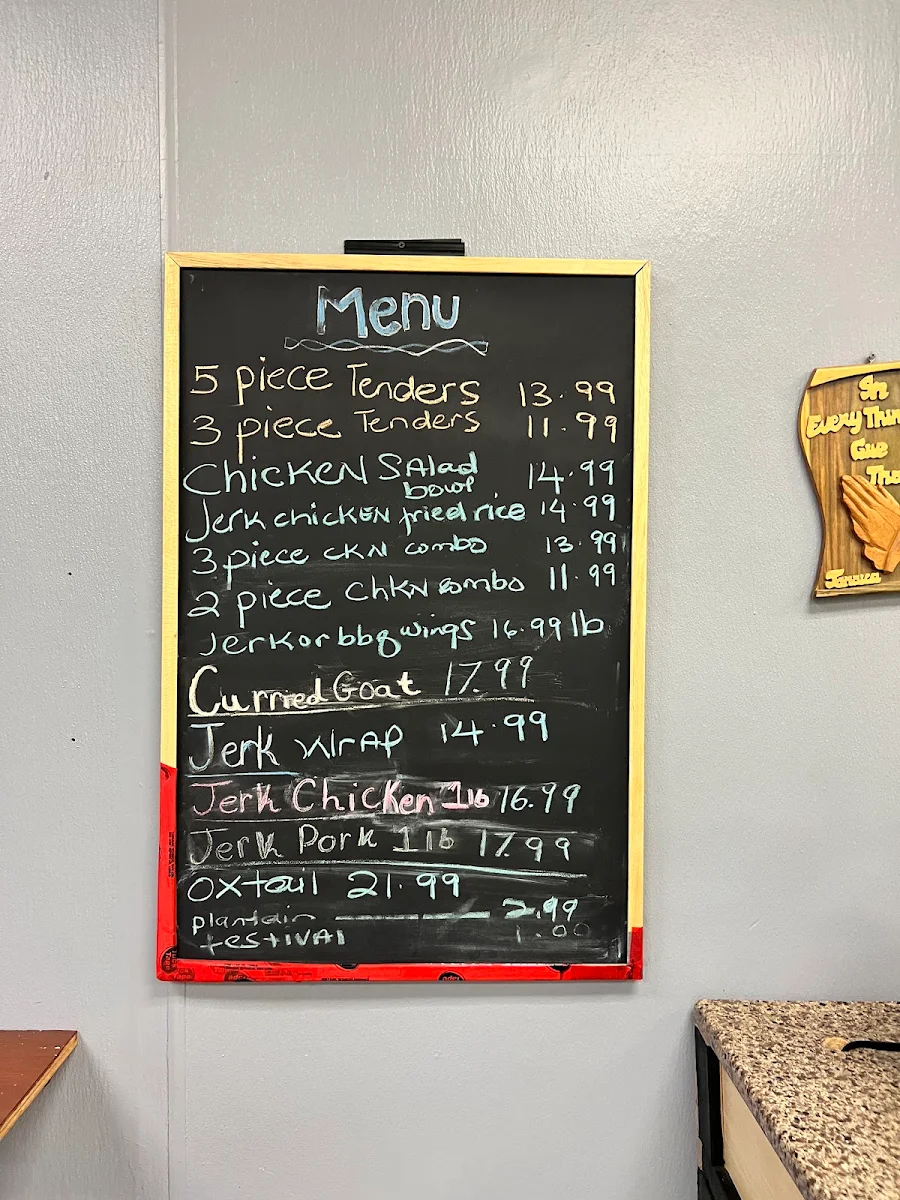 Menu
5 piece Tenders 13.99
3 piece Tenders 11.99
Chicken Salad 14.99
bowl
Jerk chicken fried rice 14.99
3 piece CKN combo 13.99
2 piece Chkn combo 11.99
Jerk or bbq wings 16.99 lb
Curried Goat 17.99
Jerk wrap 14.99
Jerk Chicken 1lb 16.99
Jerk Pork 1lb 17.99
oxtail 21.99
plantain 2.99
festival 1.00
In
Every Thin
Give
Tha
Jamaica